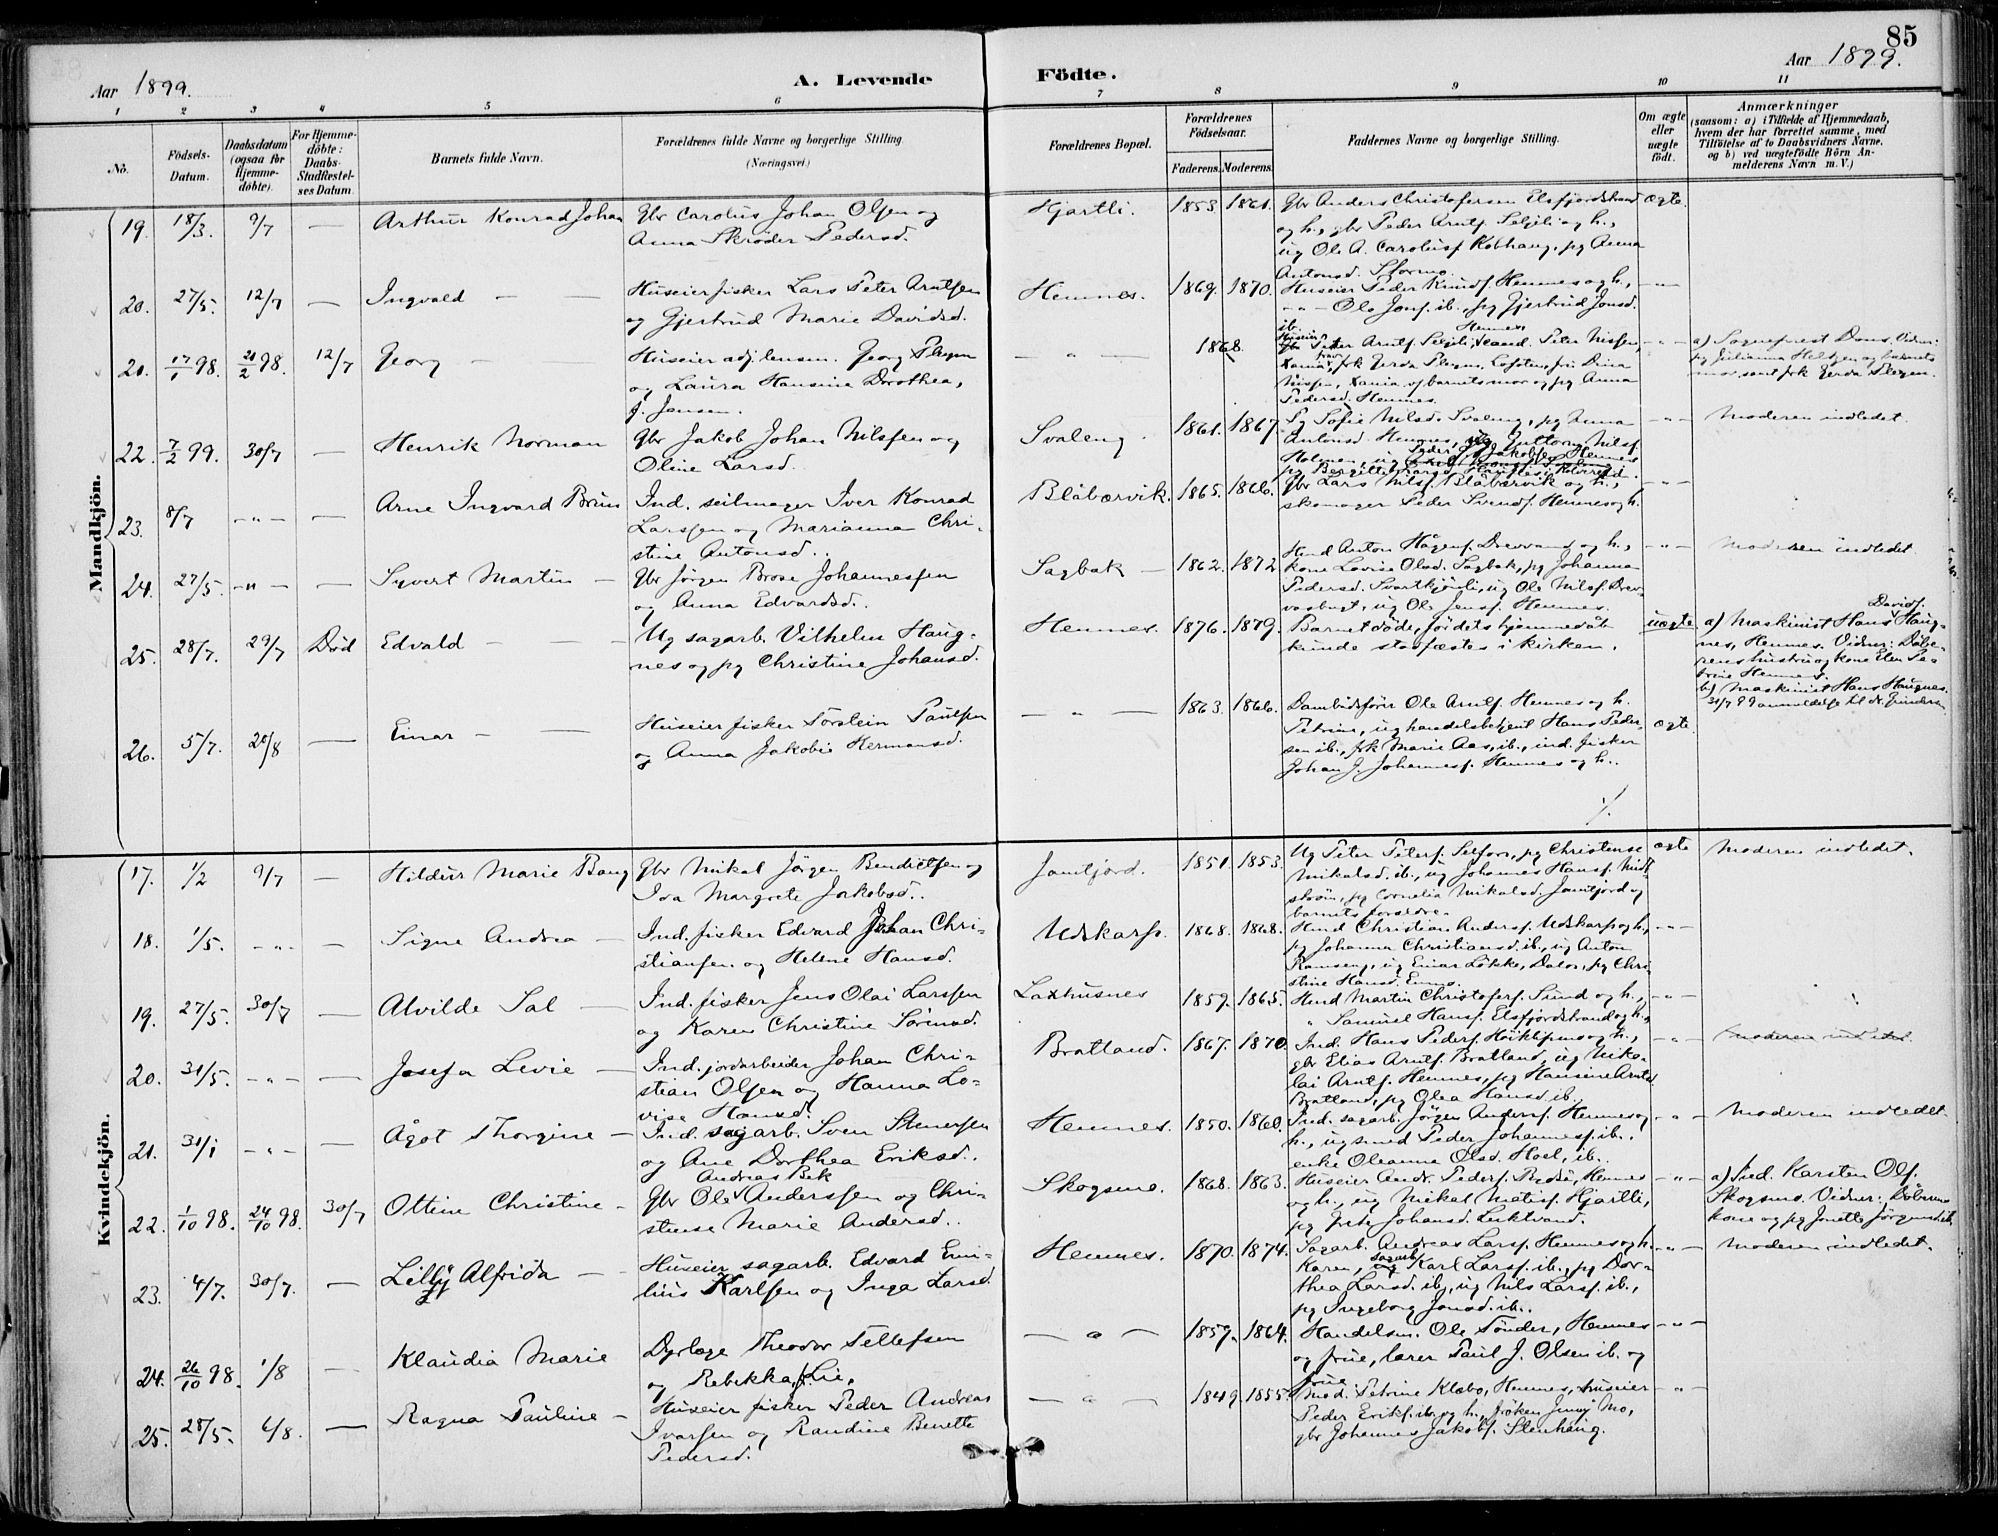 85
Aar 1899.
A. Levende
Födte.
Aar 1899.
1 2 3 4 5 6 7 8 9 10 11
No.
Födsels-
Datum.
Daabsdatum
(ogsaa for
Hjemme-
döbte).
For Hjemme-
döbte:
Daabs-
Stadfæstel-
ses Datum.
Barnets fulde Navn.
Forældrenes fulde Navne og borgerlige Stilling
(Næringsvei.)
Forældrenes Bopæl.
Forældrenes
Födselsaar.
Faderens.
Moderens.
Faddernes Navne og borgerlige Stilling.
Om ægte
eller
uægte
födt.
Anmærkninger
(saasom: a) i Tilfælde af Hjemmedaab,
hvem der har forrettet samme, med
Tilföielse af to Daabsvidners Navne.
og b) ved uægtefödte Börn An-
melderens Navn m. V.)
Mandkjön.
19. 18/3 9/7 — Arthur Konrad Johan
Gbr Carolus Johan Olsen og
Anna Skröder Pedersd.
Hjartli. 1853. 1861.
Gbr Anders Christofersen Elsfjordstrand
og h., gbr Peder Arntf. Seljeli og h.,
ug Ole A. Carolusf. Kobhaug, pg Anna
Antonsd. Stormo.
ægte.
20. 27/5. 12/7 — Ingvald — —
Huseier fisker Lars Peter Arntsen
og Gjertrud Marie Davidsd.
Hemnes. 1869. 1870.
Huseier Peder Knudf. Hemnes og h.,
— " — Ole Jonf. ib., pg Gjertrud Jonsd.
ib.
— " —
21. 17/1 98. 21/2 98. 12/7 Georg —
Huseier adj. lensm. Georg Plegen
og Laura Hansine Dorothea,
f. Jensen.
— " — 1868.
Huseier Peder Arntf. Seljeli, Hemnes, cand. Peter Nissen,
Xania, frk Gerda Plegen, Lofoten, frue Dina
Nissen, Xania og barnets mor og pg Anna
Pedersd. Hemnes.
— " —
a) Sogneprest Daus. Vidner:
pg Julianna Heltzen og barnets
mor samt frk Gerda Plegen.
22. 7/2 99. 30/7 — Henrik Norman
Gbr Jakob Johan Nilssen og
Oline Larsd.
Svaleng. 1861. 1867
Pg Sofie Nilsd. Svaleng, pg Anna
Antonsd. Hemnes, ug Guttorm Nilsf.
Holmen, ug Peder Jakobsen Hemnes
— " — Moderen indledet.
23. 8/7 — " — — Arne Ingvard Brun
Ind. seilmager Iver Konrad
Larssen og Marianna Chri-
stine Antonsd..
Blåbærvik. 1865. 1866.
Gbr Lars Nilsf. Blåbærvik og h.,
skomager Peder Svendf. Hemnes og h.
— " —
24. 27/5. — " — — Syvert Martin —
Gbr Jörgen Brose Johannessen
og Anna Edvardsd..
Sagbak — 1862. 1872
Hmd Anton Hågenf. Drevvand og h.,
kone Lovise Olsd. Sagbak, pg Johanna
Pedersd. Svartkjönli, ug Ole Nilsf. Drev-
vasbugt, ug Ole Jensf. Hemnes.
— " — Moderen indledet.
25. 28/7. 29/7 Död Edvald — — —
Ug sagarb. Vilhelm Haug-
nes og pg Christine Johansd.
Hemnes. 1876. 1879.
Barnet döde, för dets hjemmedåb
kunde stadfæstes i kirken.
uægte
a) Maskinist Hans Davidf. Haug-
nes, Hemnes. Vidner: Döbe-
rens hustru og kone Elen Pe-
trine Hemnes.
b) Maskinist Hans Haugnes.
31/7 99 anmeldelse til
26. 5/7. 20/8 — Einar — —
Huseier fisker Torstein Paulsen
og Anna Jakobie Hermansd.
— " — 1863. 1866.
Dambådsförer Ole Arntf. Hemnes og h.
Petrine, ug handelsbetjent Hans Peder-
sen ib., frk Marie Aas, ib., ind. fisker
Johan J. Johannesf. Hemnes og h..
ægte.
Kvindekjön.
17. 1/2 9/7 — Hildur Marie Bang
Gbr Mikal Jörgen Bendictsen og
Ida Margrete Jakobsd..
Jamtjord. 1851. 1853.
Ug Peter Peterf. Selfors, pg Christense
Mikalsd. ib., ug Johannes Hansf. Mid-
ström, pg Cornelia Mikalsd. Jamtjord og
barnets forældre.
ægte Moderen indledet.
18. 1/5. — " — — Signe Andrea —
Ind. fisker Edvard Johan Chri-
stiansen og Helene Hansd.
Udskarpo. 1868. 1868.
Hmd Christian Andersf. Udskarp og h.,
pg Johanna Christiansd. ib., ug Anton
Ranseng, ug Einar Lökke, Dalos, pg Chri-
stine Hansd. Emnes.
— " —
19. 27/5. 30/7 — Alvilde Sal —
Ind. fisker Jens Olai Larssen
og Karen Christine Sörensd.
Laxhusnes 1859. 1865.
Hmd Martin Christoferf. Sund og h.,
" Samuel Hansf. Elsfjordstrand og h.,
— " —
20. 31/5. — " — — Josefa Levie —
Ind. jordarbeider Johan Chri-
stian Olsen og Hanna Lo-
vise Hansd.
Bratland. 1867. 1870.
Ind. Hans Pederf. Höiklipnes og h.,
gbr Elias Arntf. Bratland, ug Niko-
lai Arntf. Hemnes, pg Hansine Arntsd.
Bratland, pg Olea Hansd. ib.
— " — Moderen indledet
21. 31/1 — " — — Ågot Thorgine —
Ind. sagarb. Sven Stenersen
og Ane Dorthea Eriksd..
Hemnes. 1850. 1860.
Ind. sagarb. Jörgen Andersf. Hemnes og
h., ug smed Peder Johannesf. ib.,
enke Oleanne Olsd. Hoel, ib..
— " — Moderen indledet
22. 1/10 98. 24/10 98. 30/7 Ottine Christine —
Gbr Ole Andreas Bek Anderssen og Chri-
stense Marie Andersd..
Skogsmo. 1868. 1863.
Huseier Andr. Pedersf. Bredö, Hemnes
og h., ug Mikal Matisf. Hjartli,
pg Johansd. Luktvand.
— " —
a) Ind. Karsten Olf.
Skogsmo. Vidner: Döberens
kone og pg Jonette Jörgensd. ib.
23. 4/7. 30/7. — Lilly Alfrida —
Huseier sagarb. Edvard Emi-
lius Karlsen og Inga Larsd
Hemnes. 1870. 1874.
Sagarb. Andreas Larsf. Hemnes og h.
Karen, sagarb. Karl Larsf. ib., pg Dor-
thea Larsd. ib., ug Nils Larsf. ib.,
pg Ingeborg Jonsd. ib..
— " — Moderen indledet.
24. 26/10 98. 1/8 — Klaudia Marie
Dyrlæge Theodor Tellefsen
og Rebekka, f. Lie.
— " — 1859. 1864.
Handelsm. Ole Tönder, Hemnes
og frue, lærer Paul J. Olsen ib. og
frue
— " —
25. 28/5. 6/8. — Ragna Pauline —
Huseier fisker Peder Andreas
Ivarsen og Randine Benette
Pedersd.
— " — 1849. 1855.
Mad. Petrine Klæbo, Hemnes, huseier
Peder Erikf. ib. og h., fröken Jenny Mo,
gbr Johannes Jakobf. Stenhaug.
— " —